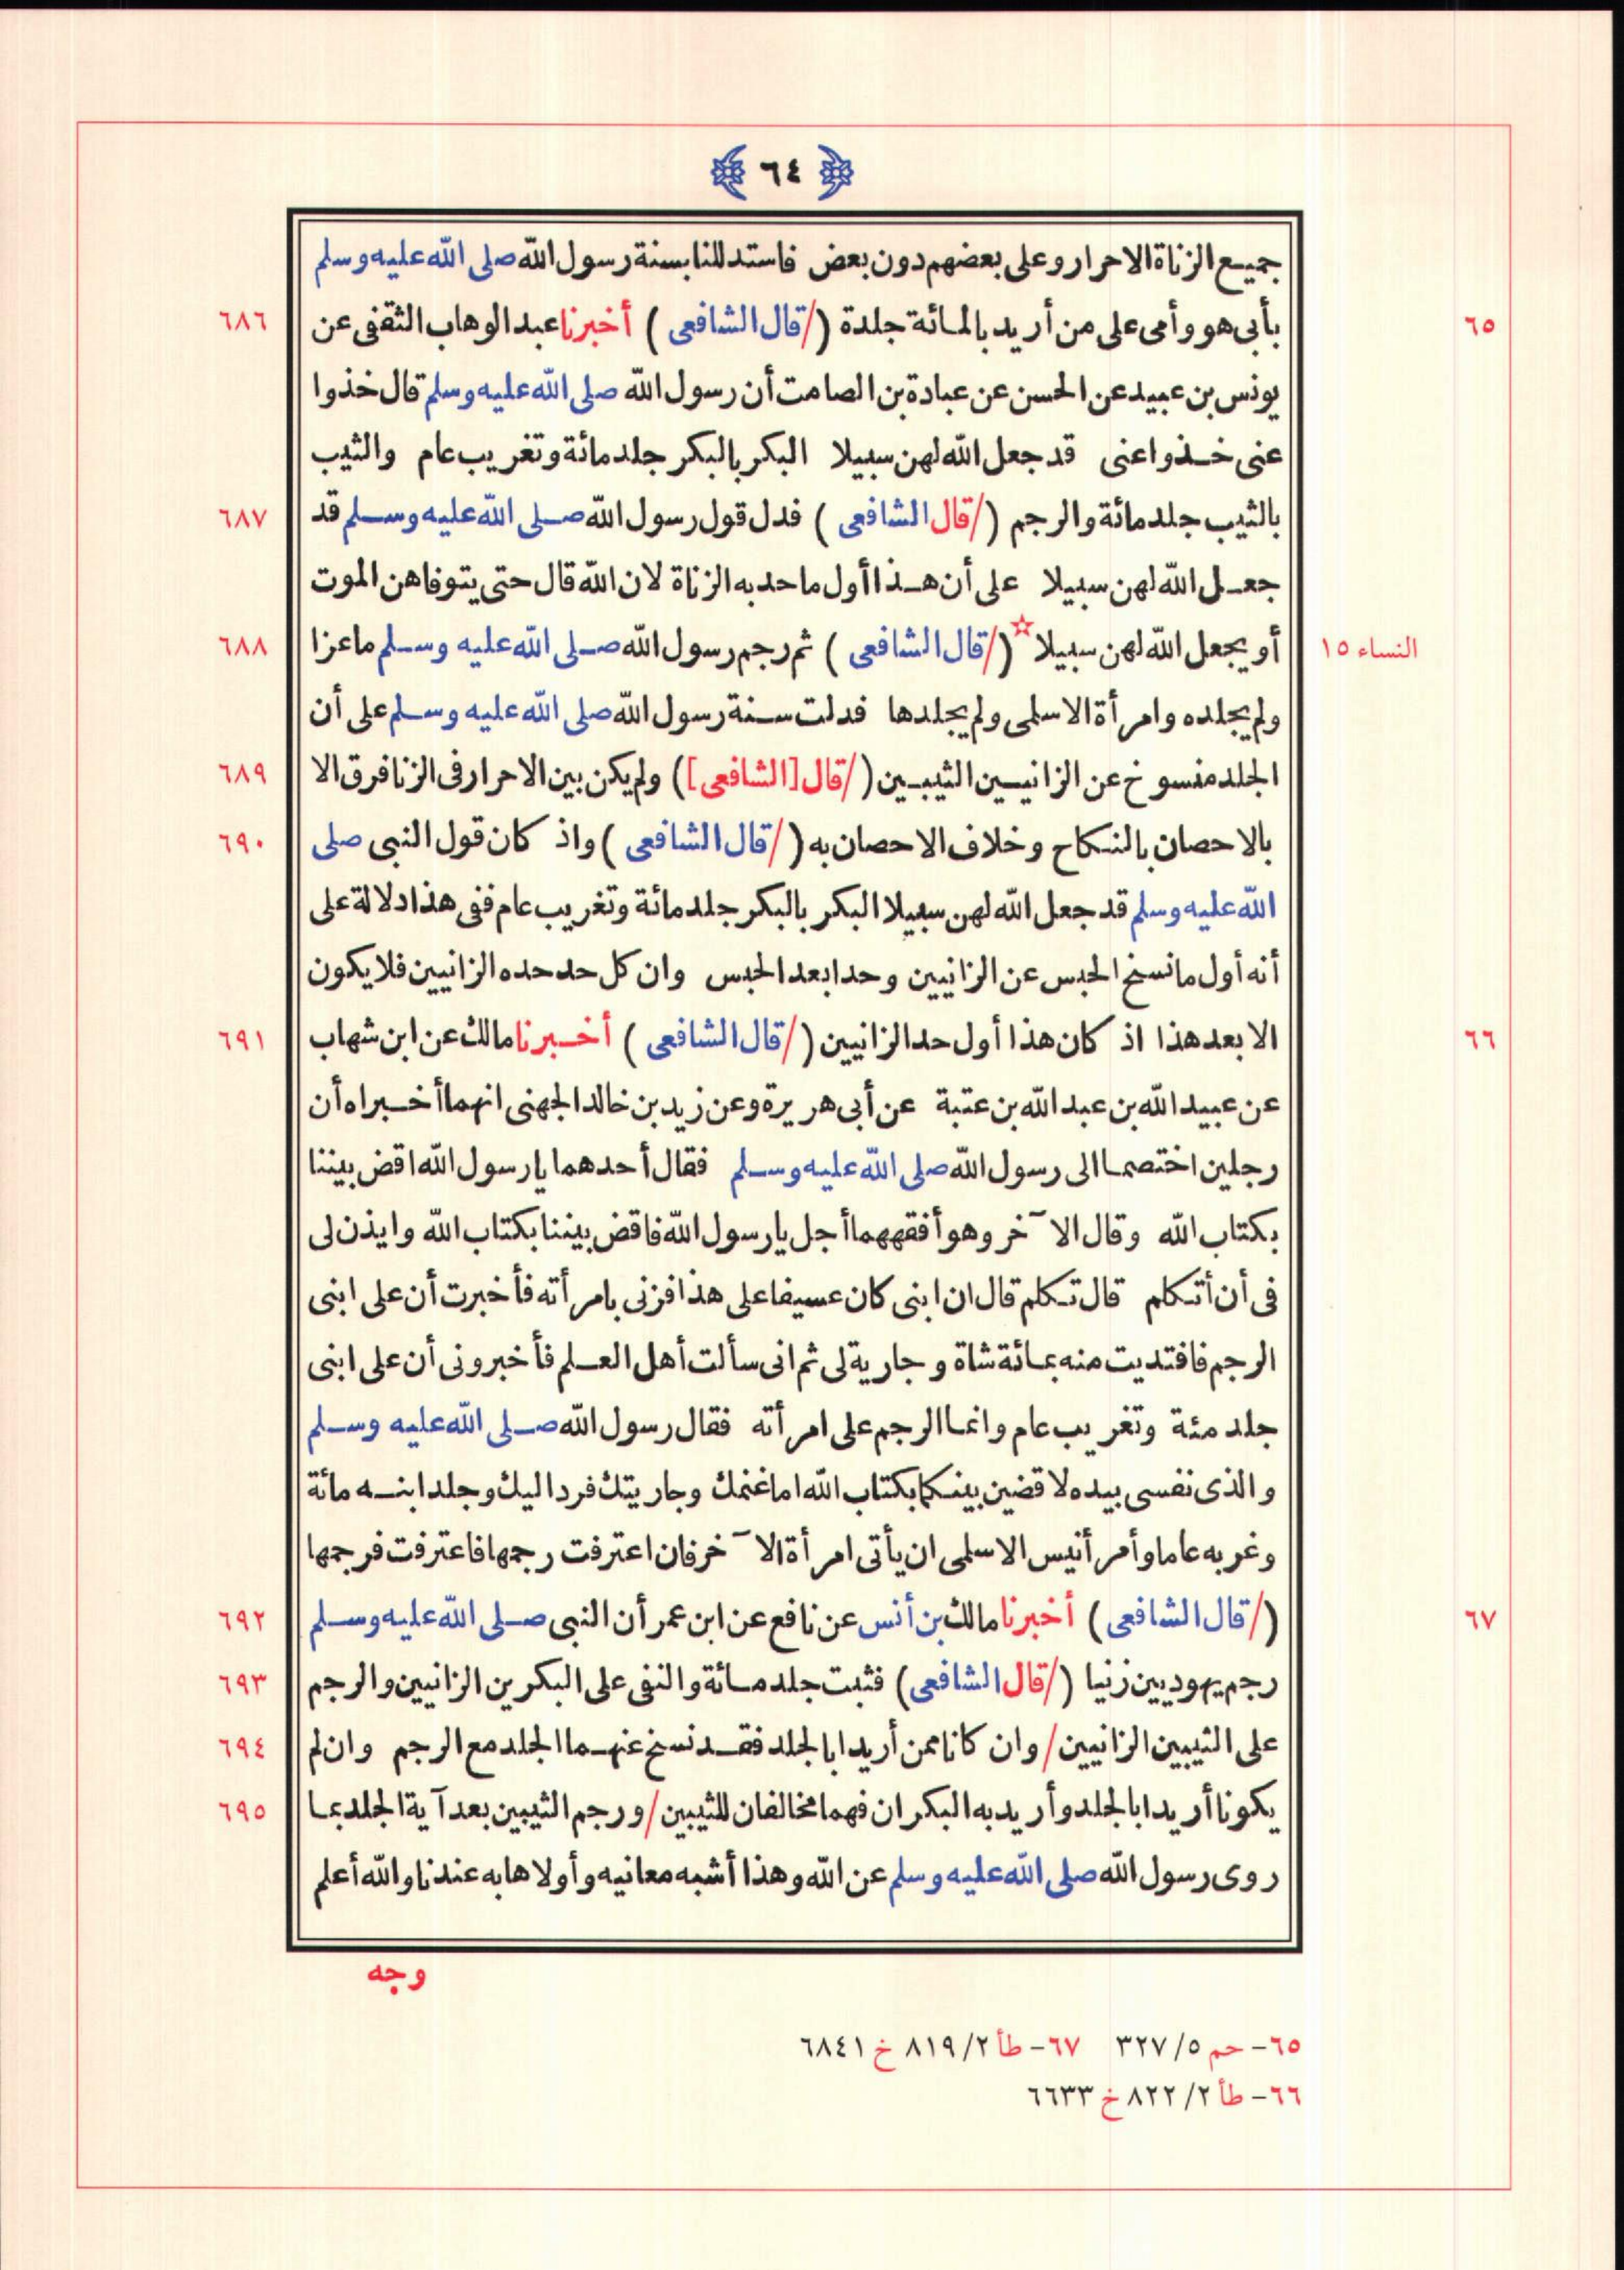 ﴿ ٦٤ ﴾
جميع الزناة الاحرار وعلى بعضهم دون بعض فاستدللنا بسنة رسول الله صلى الله عليه وسلم
٦٥ بأبى هو وأمى على من أريد بالمائة جلدة (/قال الشافعى ) أخبرنا عبد الوهاب الثقفى عن ٦٨٦
يونس بن عبيد عن الحسن عن عبادة بن الصامت أن رسول الله صلى الله عليه وسلم قال خذوا
عنى خذوا عنى قد جعل الله لهن سبيلا البكر بالبكر جلد مائة وتغريب عام والثيب
بالثيب جلد مائة والرجم (/قال الشافعى ) فدل قول رسول الله صلى الله عليه وسلم قد ٦٨٧
جعل الله لهن سبيلا على أن هذا أول ما حد به الزناة لان الله قال حتى يتوفاهن الموت
النساء ١٥ أو يجعل الله لهن سبيلا☆ (/قال الشافعى ) ثم رجم رسول الله صلى الله عليه وسلم ماعزا ٦٨٨
ولم يجلده وامرأة الاسلمى ولم يجلدها فدلت سنة رسول الله صلى الله عليه وسلم على أن
الجلد منسوخ عن الزانيين الثيبين (/قال [الشافعى]) ولم يكن بين الاحرار فى الزنا فرق الا ٦٨٩
بالاحصان بالنكاح وخلاف الاحصان به (/قال الشافعى ) واذ كان قول النبى صلى ٦٩٠
الله عليه وسلم قد جعل الله لهن سبيلا البكر بالبكر جلد مائة وتغريب عام ففى هذا دلالة على
أنه أول ما نسخ الحبس عن الزانيين وحدا بعد الحبس وان كل حد حده الزانيين فلا يكون
٦٦ الا بعد هذا اذ كان هذا أول حد الزانيين (/قال الشافعى ) أخبرنا مالك عن ابن شهاب ٦٩١
عن عبيد الله بن عبد الله بن عتبة عن أبى هريرة وعن زيد بن خالد الجهنى انهما أخبراه أن
رجلين اختصما الى رسول الله صلى الله عليه وسلم فقال أحدهما يا رسول الله اقض بيننا
بكتاب الله وقال الآخر وهو أفقههما أجل يا رسول الله فاقض بيننا بكتاب الله وايذن لى
فى أن أتكلم قال تكلم قال ان ابنى كان عسيفا على هذا فزنى بامرأته فأخبرت أن على ابنى
الرجم فافتديت منه بمائة شاة وجارية لى ثم انى سألت أهل العلم فأخبرونى أن على ابنى
جلد مئة وتغريب عام وانما الرجم على امرأته فقال رسول الله صلى الله عليه وسلم
والذى نفسى بيده لاقضين بينكما بكتاب الله اما غنمك وجاريتك فرد اليك وجلد ابنه مائة
وغربه عاما وأمر أنيس الاسلمى ان يأتى امرأة الآخر فان اعترفت رجمها فاعترفت فرجمها
٦٧ (/قال الشافعى ) أخبرنا مالك بن أنس عن نافع عن ابن عمر أن النبى صلى الله عليه وسلم ٦٩٢
رجم يهوديين زنيا (/قال الشافعى) فثبت جلد مائة والنفى على البكرين الزانيين والرجم ٦٩٣
على الثيبين الزانيين/ وان كانا ممن أريدا بالجلد فقد نسخ عنهما الجلد مع الرجم وان لم ٦٩٤
يكونا أريدا بالجلد وأريد به البكران فهما مخالفان للثيبين/ ورجم الثيبين بعد آية الجلد بما ٦٩٥
روى رسول الله صلى الله عليه وسلم عن الله وهذا أشبه معانيه وأولاها به عندنا والله أعلم
وجه
٦٥- حم ٥/ ٣٢٧ ٦٧- طأ ٢/ ٨١٩ خ ٦٨٤١
٦٦- طأ ٢/ ٨٢٢ خ ٦٦٣٣